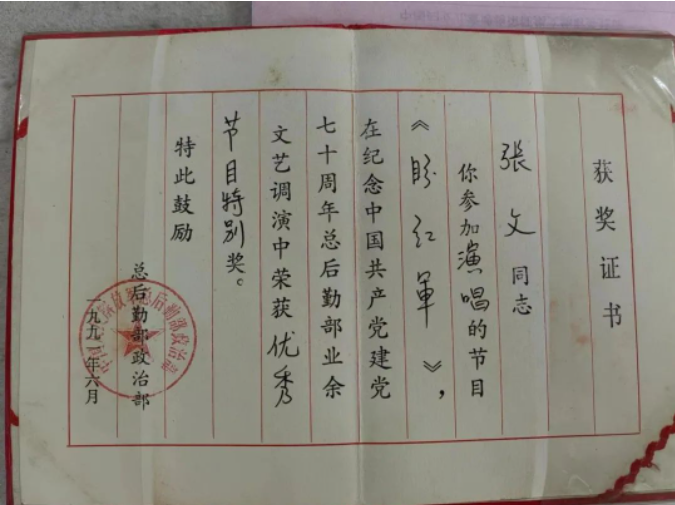 获奖证书
張文同志
你参加演唱的节目
《盼红軍》，
在纪念中国共产党建党
七十周年总后勤部业余
文艺调演中荣获优秀
节目特别奖。
特此鼓励
总后勤部政治部
一九九一年六月